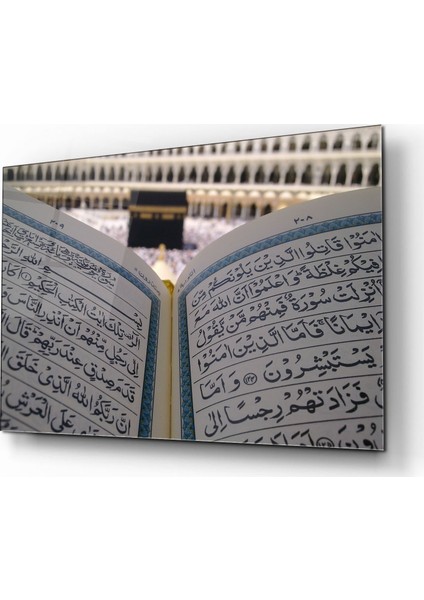 ٢٠٨
اٰمَنُوْا قَاتِلُوا الَّذِيْنَ يَلُوْنَكُمْ مِّنَ
فِيْكُمْ غِلْظَةً وَاعْلَمُوْٓا اَنَّ اللّٰهَ مَعَ
اُنْزِلَتْ سُوْرَةٌ فَمِنْهُمْ مَّنْ يَّقُوْلُ
اِيْمَانًا فَاَمَّا الَّذِيْنَ اٰمَنُوْا
يَسْتَبْشِرُوْنَ ﴿١٢٤﴾ وَاَمَّا
فَزَادَتْهُمْ رِجْسًا اِلٰى
٢٠٩
اللّٰهِ
الٓرٰ تِلْكَ اٰيٰتُ الْكِتٰبِ الْحَكِيْمِ ﴿١﴾ اَكَانَ
اِلٰى رَجُلٍ مِّنْهُمْ اَنْ اَنْذِرِ النَّاسَ
قَدَمَ صِدْقٍ عِنْدَ رَبِّهِمْ قَالَ
اِنَّ رَبَّكُمُ اللّٰهُ الَّذِيْ خَلَقَ
عَلَى الْعَرْشِ